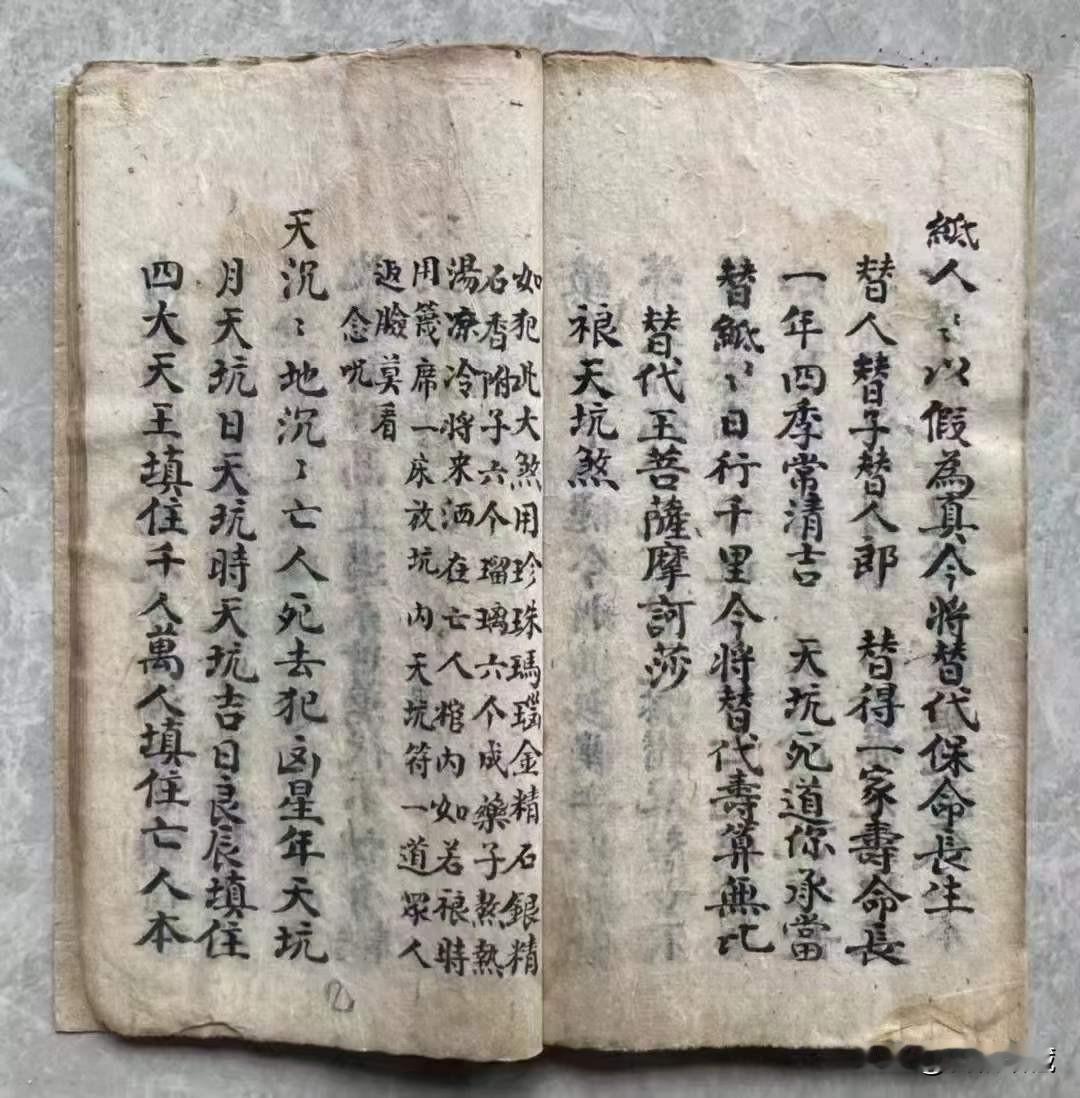 紙人〻以假為真今將替代保命長生
替人替子替人郎 替得一家壽命長
一年四季常清吉 天坑死道你承當
替紙〻日行千里今將替代壽算無比
替代王菩薩摩訶莎
禳天坑煞
如犯此大煞用珍珠瑪瑙金精石銀精
石香附子六个瑠璃六个成藥子熬熱
湯凉冷將來洒在亡人棺內如若禳時
用篾席一床放坑內天坑符一道眾人
返臉莫看
念咒
天沉〻地沉〻亡人死去犯凶星年天坑
月天坑日天坑時天坑吉日良辰填住
四大天王填住千人萬人填住亡人本